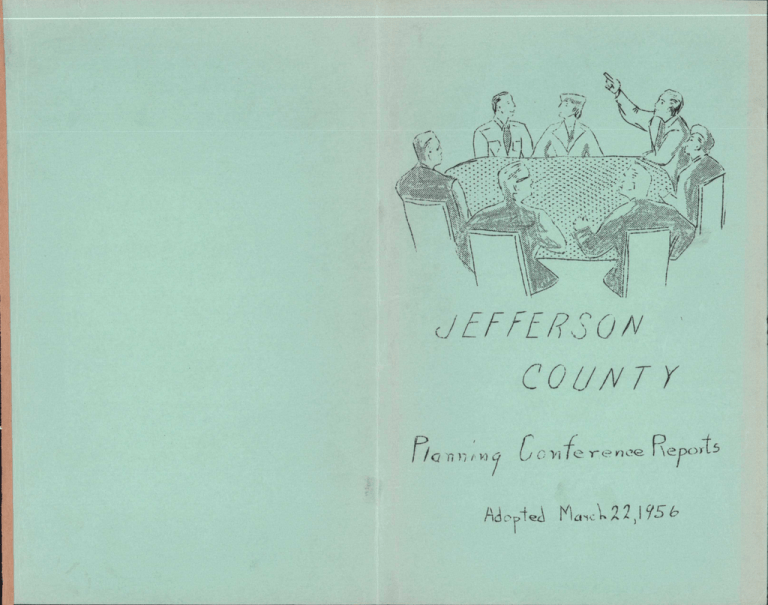 JEFFERSON
COUNTY
Planning Conference Reports
Adopted March 22, 1956